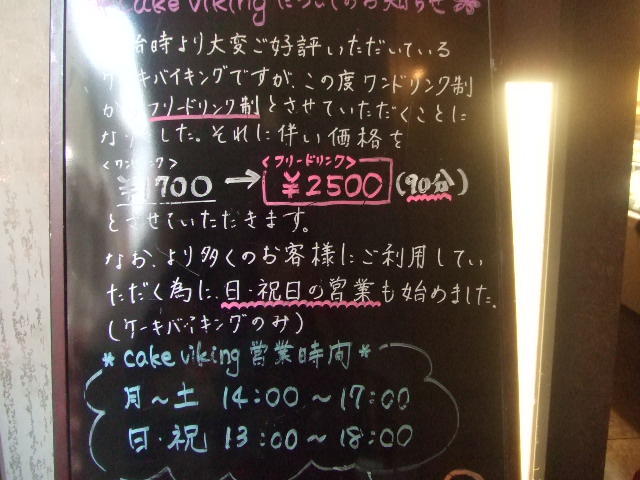 cake vikingについてのお知らせ
始時より大変ご好評いただいている
ケーキバイキングですが、この度ワンドリンク制
からフリードリンク制とさせていただくことに
なりました。それに伴い価格を
<ワンドリンク> <フリードリンク>
¥1700 → ¥2500 (90分)
とさせていただきます。
なお、より多くのお客様にご利用してい
ただく為に、日・祝日の営業も始めました。
(ケーキバイキングのみ)
*cake viking営業時間*
月〜土 14:00〜17:00
日・祝 13:00〜18:00